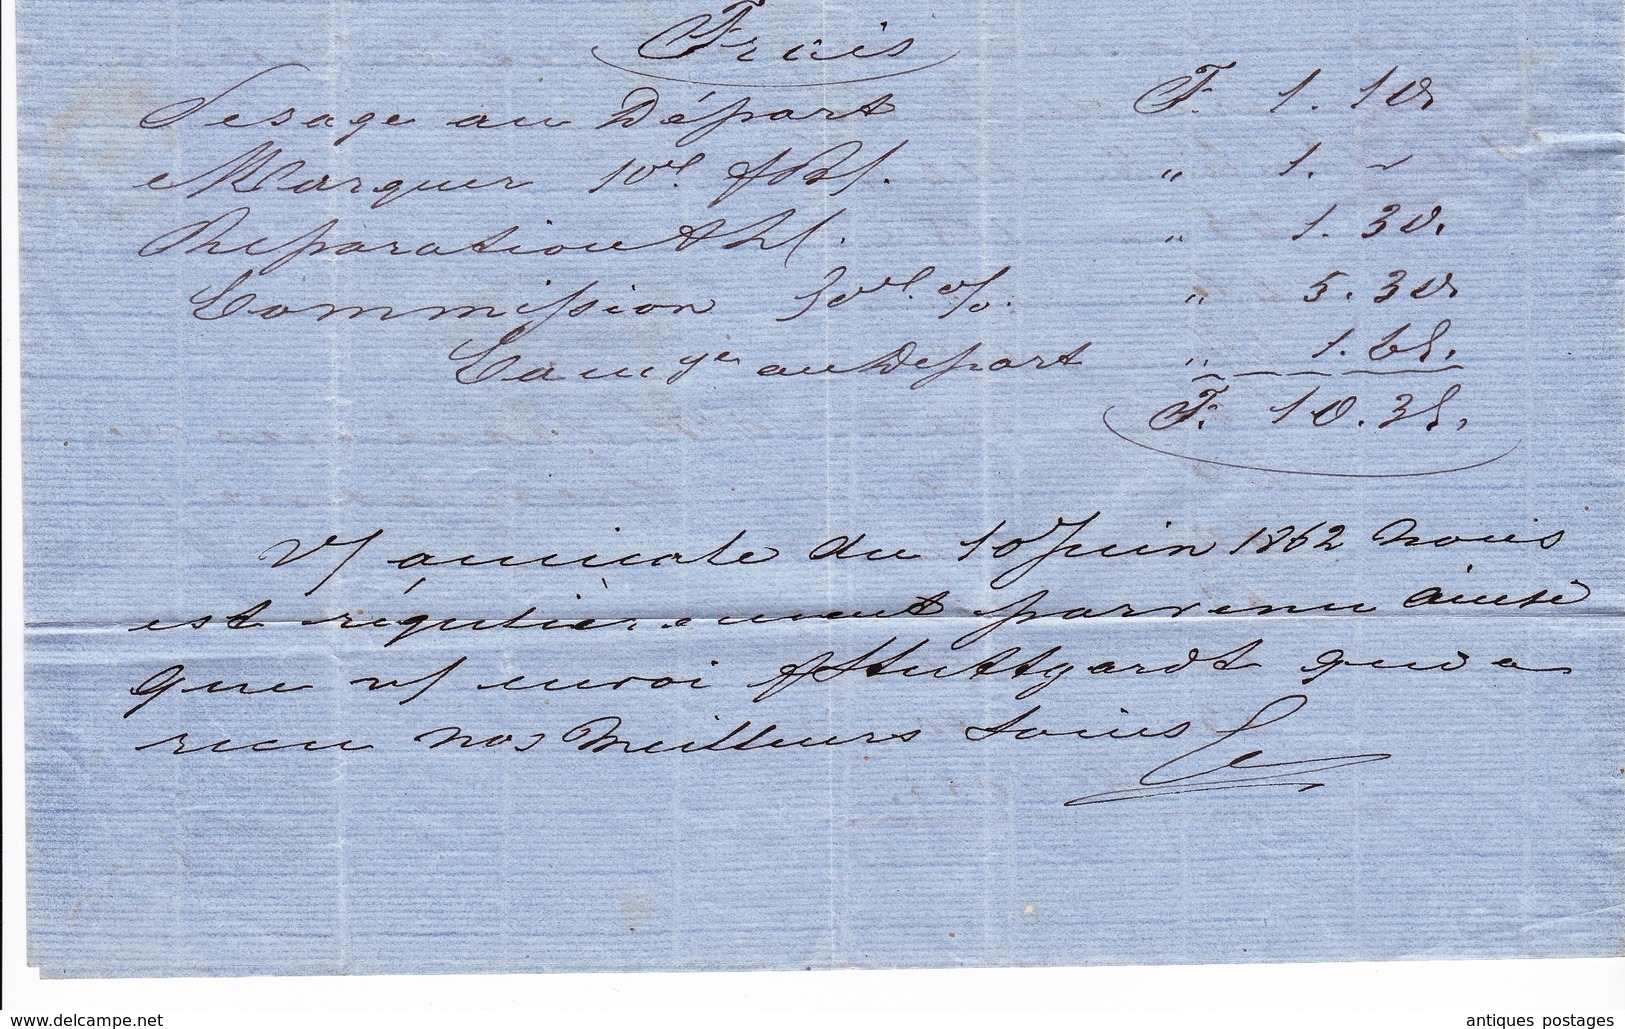 Frais
Pesage au Départ F. 1. 10
Marquer 10c. " 1. ~
Réparation " 1. 30.
Commission 30c. % " 5. 30
au Départ " 1. 65.
F. 10. 35.
V/ amicale du 10 Juin 1862 nous
est régulièrement parvenu ainsi
que v/ envoi Stuttgardt qui a
recu nos meilleurs soins
www.delcampe.net
antiques postages